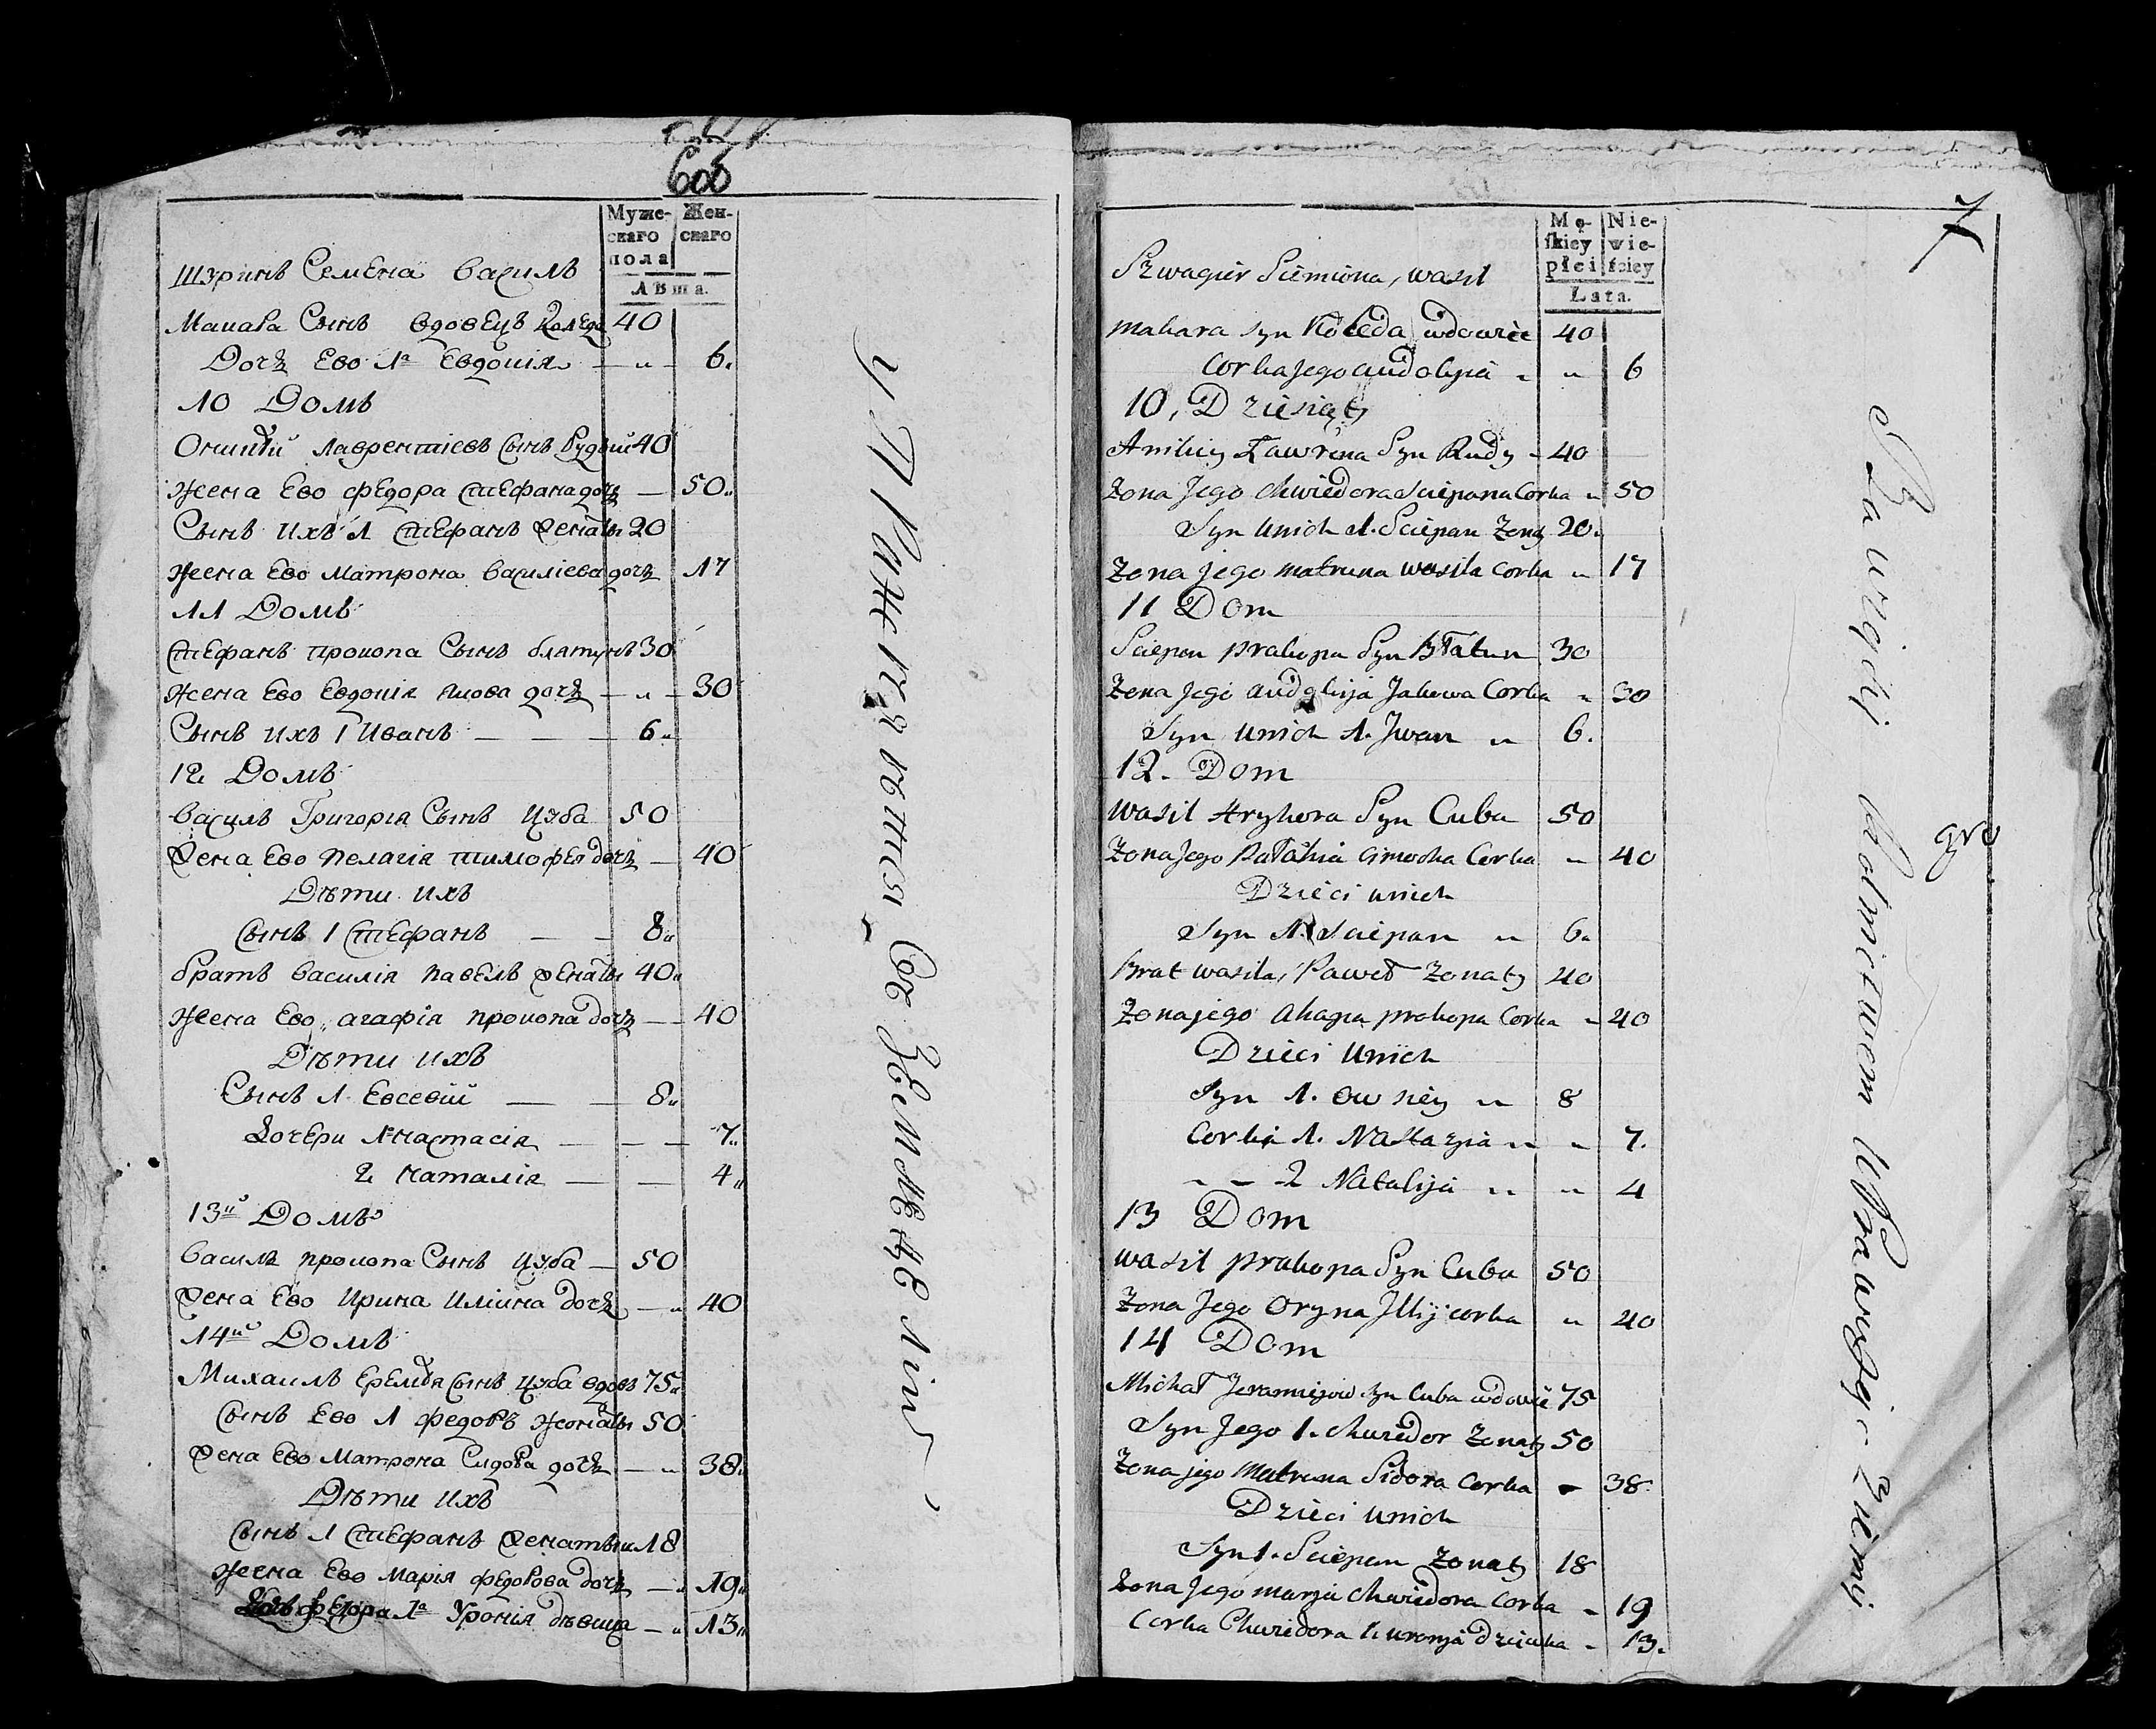 606
Муже-
скаго
пола
Жен-
скаго
Лѣта.
Шуринъ Семена Василь
Макара Сынъ вдовецъ Коледа 40
Дочь Ево 1а Евдокія — „ — 6.
10 Домъ
Оникѣй Лаврентіевъ Сынъ Рудый 40
Жена Ево Федора Стефана дочь — 50„
Сынъ Ихъ 1 Стефанъ женатъ 20
Жена Ево Матрона Василіева дочь 17
11 Домъ
Стефанъ Прокопа Сынъ Блатунъ 30
Жена Ево Евдокія Якова дочь — „ — 30
Сынъ Ихъ 1 Иванъ — — — 6„
12 Домъ
Василь Григорія Сынъ Цуба 50
Жена Ево Пелагія Тимофея дочь — 40
Дѣти Ихъ
Сынъ 1 Стефанъ — — 8„
Братъ Василія Павелъ женатъ 40„
Жена Ево Агафія Прокопа дочь — — 40
Дѣти Ихъ
Сынъ 1 Евсевій — — 8„
Дочери 1 Настасія — — — 7„
2 Наталія — — 4„
13й Домъ
Василь Прокопа Сынъ Цуба — 50
Жена Ево Ирина Иліина дочь — „ 40
14й Домъ
Михаилъ Еремѣя Сынъ Цуба вдовъ 75„
Сынъ Ево 1 Федоръ женатъ 50
Жена Ево Матрона Сидора дочь — „ 38„
Дѣти Ихъ
Сынъ 1 Стефанъ женатый 18
Жена Ево Марія Федорова дочь — „ 19„
Федора 1а Уронія дѣвица — „ 13„
упражняются въ земледѣліи
7
Mę-
skiey
płci
Nie-
wie-
ściey
Lata.
Szwagier Siemiona, wasil
makara syn Koleda wdowiec 40
Corka Jego audokija „ „ 6
10, Dziesiąty
Anikiey Ławrena Syn Rudy – 40
Zona Jego Chwiedora Sciepana Corka „ 50
Syn Unich 1. Sciepan Zonaty 20.
Zona jego matruna wasila Corka „ 17
11 Dom
Sciepan prakopa Syn Błatun 30
Zona Jego audokija Jakowa Corka „ 30
Syn unich 1. Jwan „ 6.
12. Dom
wasil Hryhora Syn Cuba 50
Zona Jego Pałahia Cimocha Corka „ 40
Dzieci unich
Syn 1. Sciepan „ 6„
Brat wasila, Paweł Zonaty 40
Zona jego Ahapa prakopa Corka „ 40
Dzieci Unich
Syn 1. Owsiey „ 8
Corka 1. Nastazya „ „ 7.
„ – 2 Natalija „ „ 4
13 Dom
wasil prakopa Syn Cuba 50
Zona Jego Oryna Jllij corka „ 40
14 Dom
Michał Jeramiejow Syn Cuba wdowiec 75
Syn Jego 1. Chwiedor Zonaty 50
Zona jego Matruna Sidora Corka – 38.
Dzieci unich
Syn 1. Sciepan Zonaty 18
Zona Jego marja Chwiedora Corka – 19
Corka Chwiedora 1. uronja dziewka – 13.